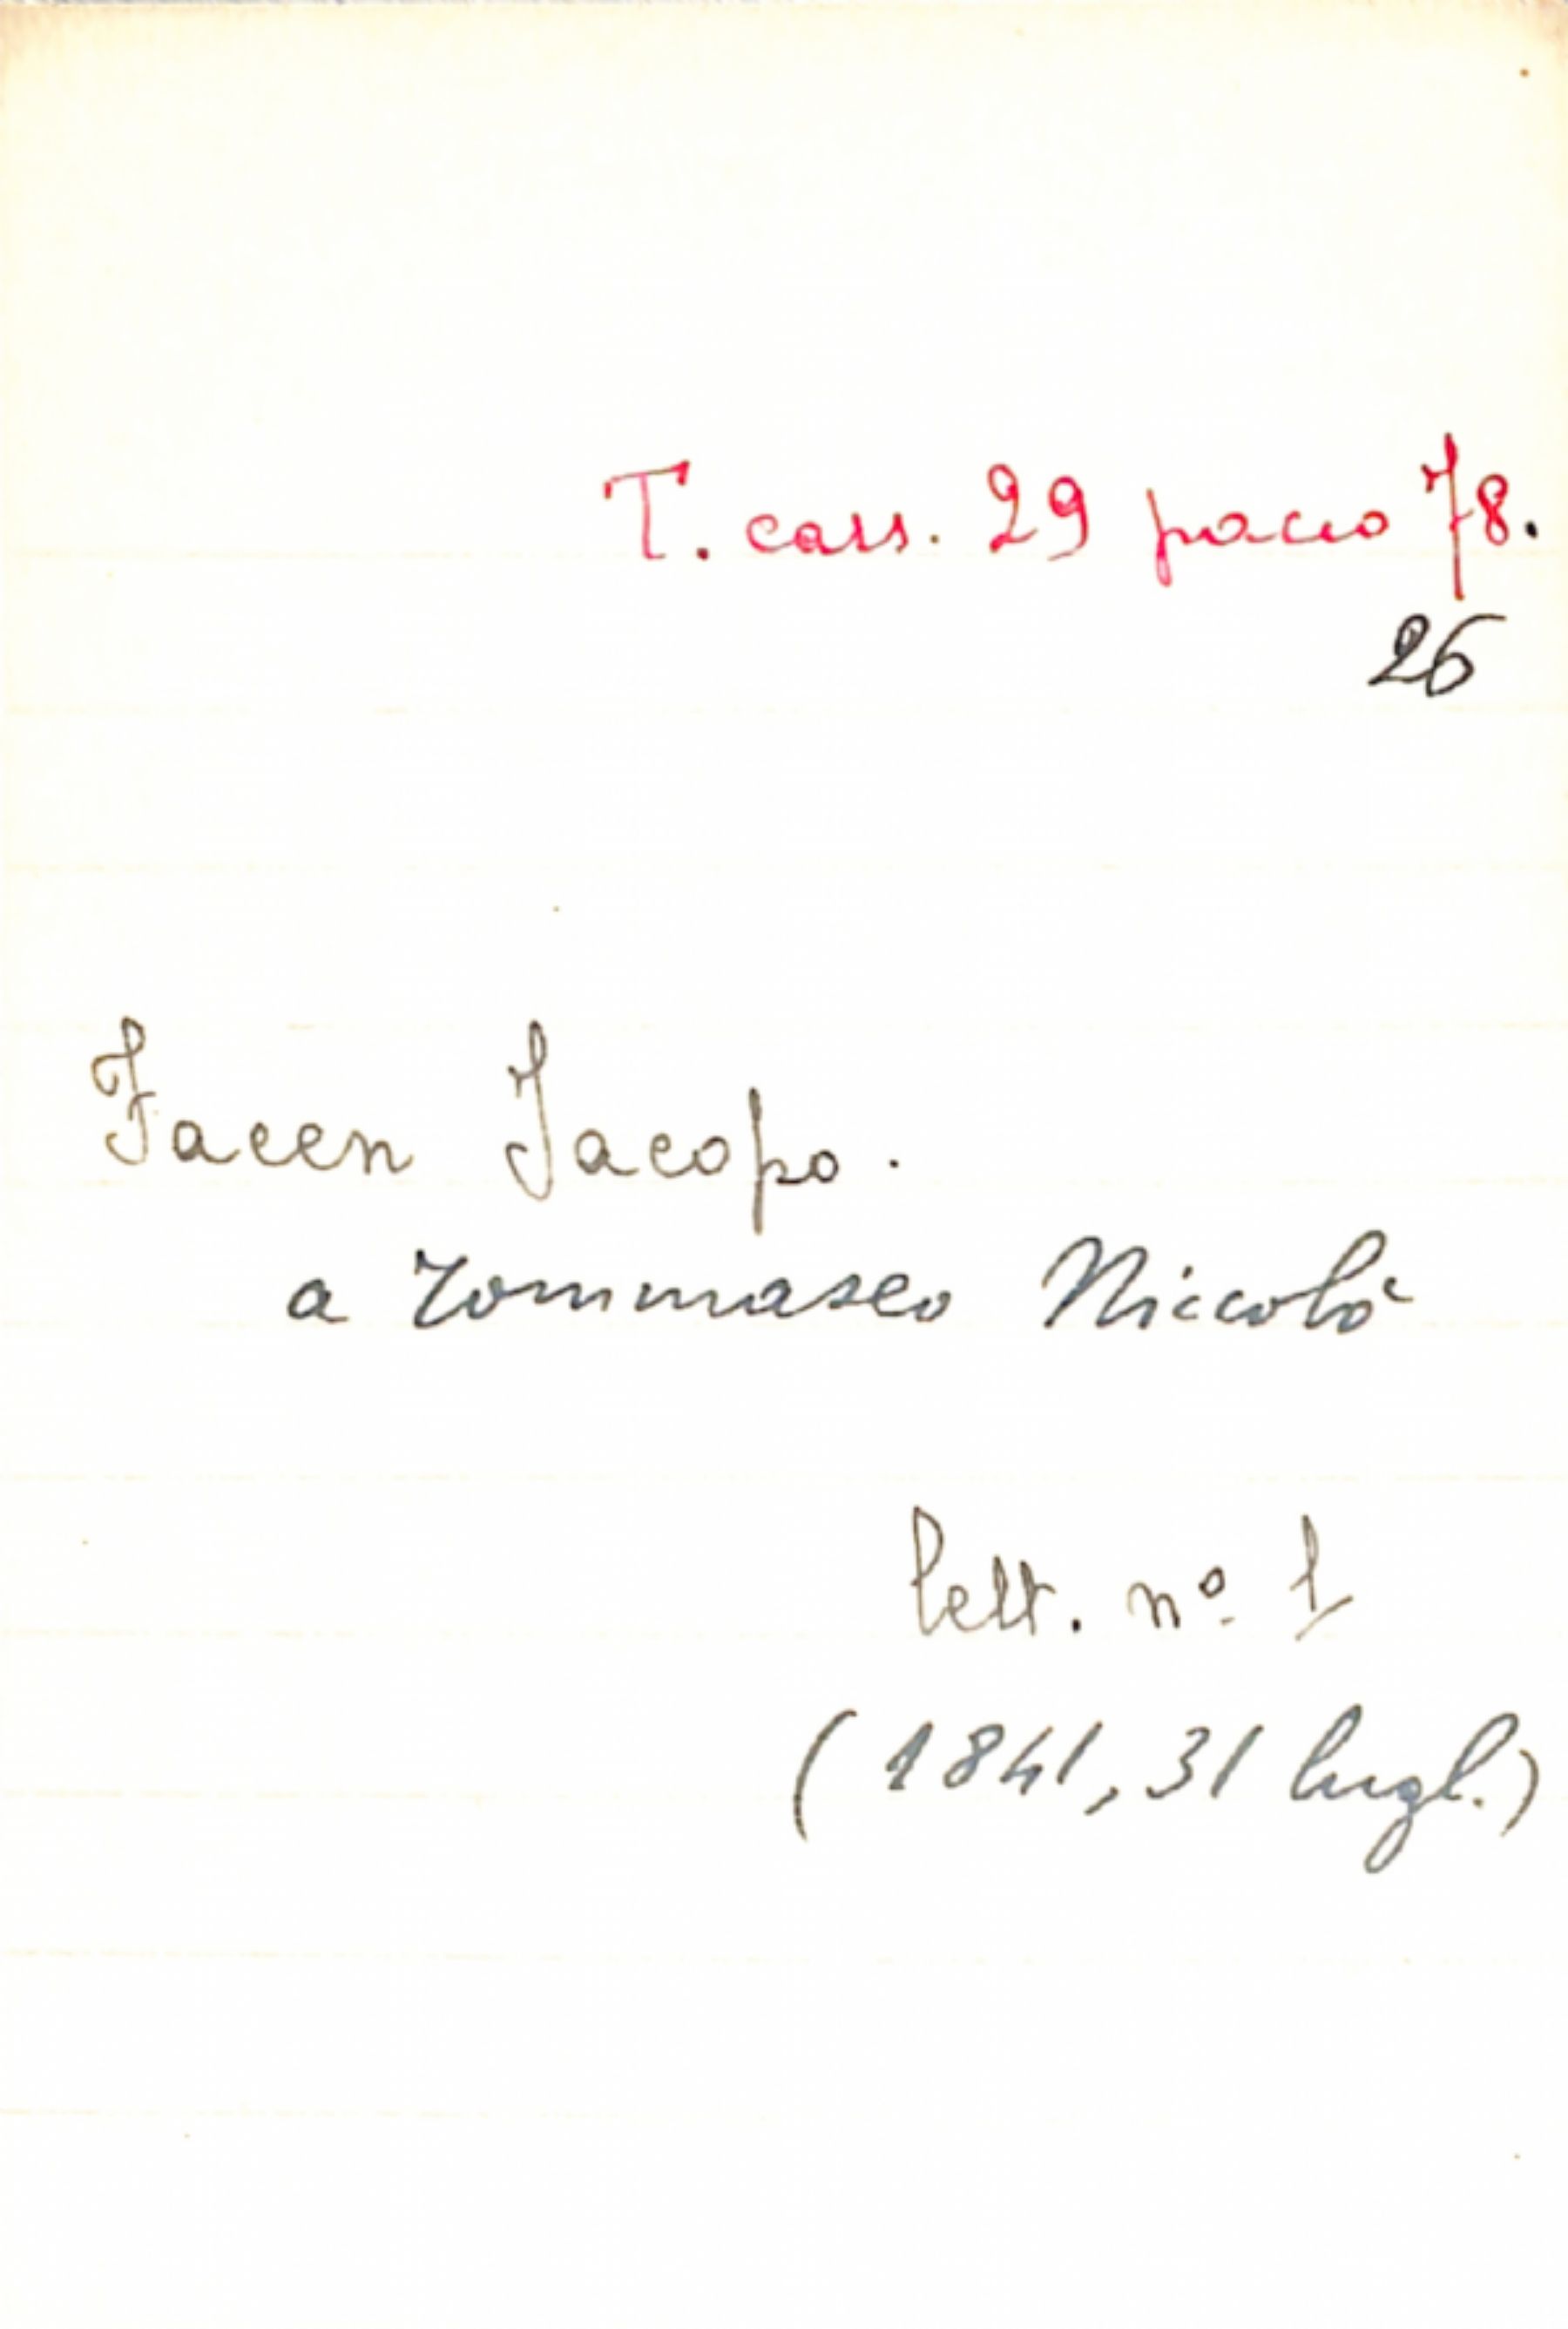 T. cass. 29 pacco 78.
26
Facen Jacopo.
a Tommaseo Niccolò
lett. nº 1
(1841, 31 lugl.)